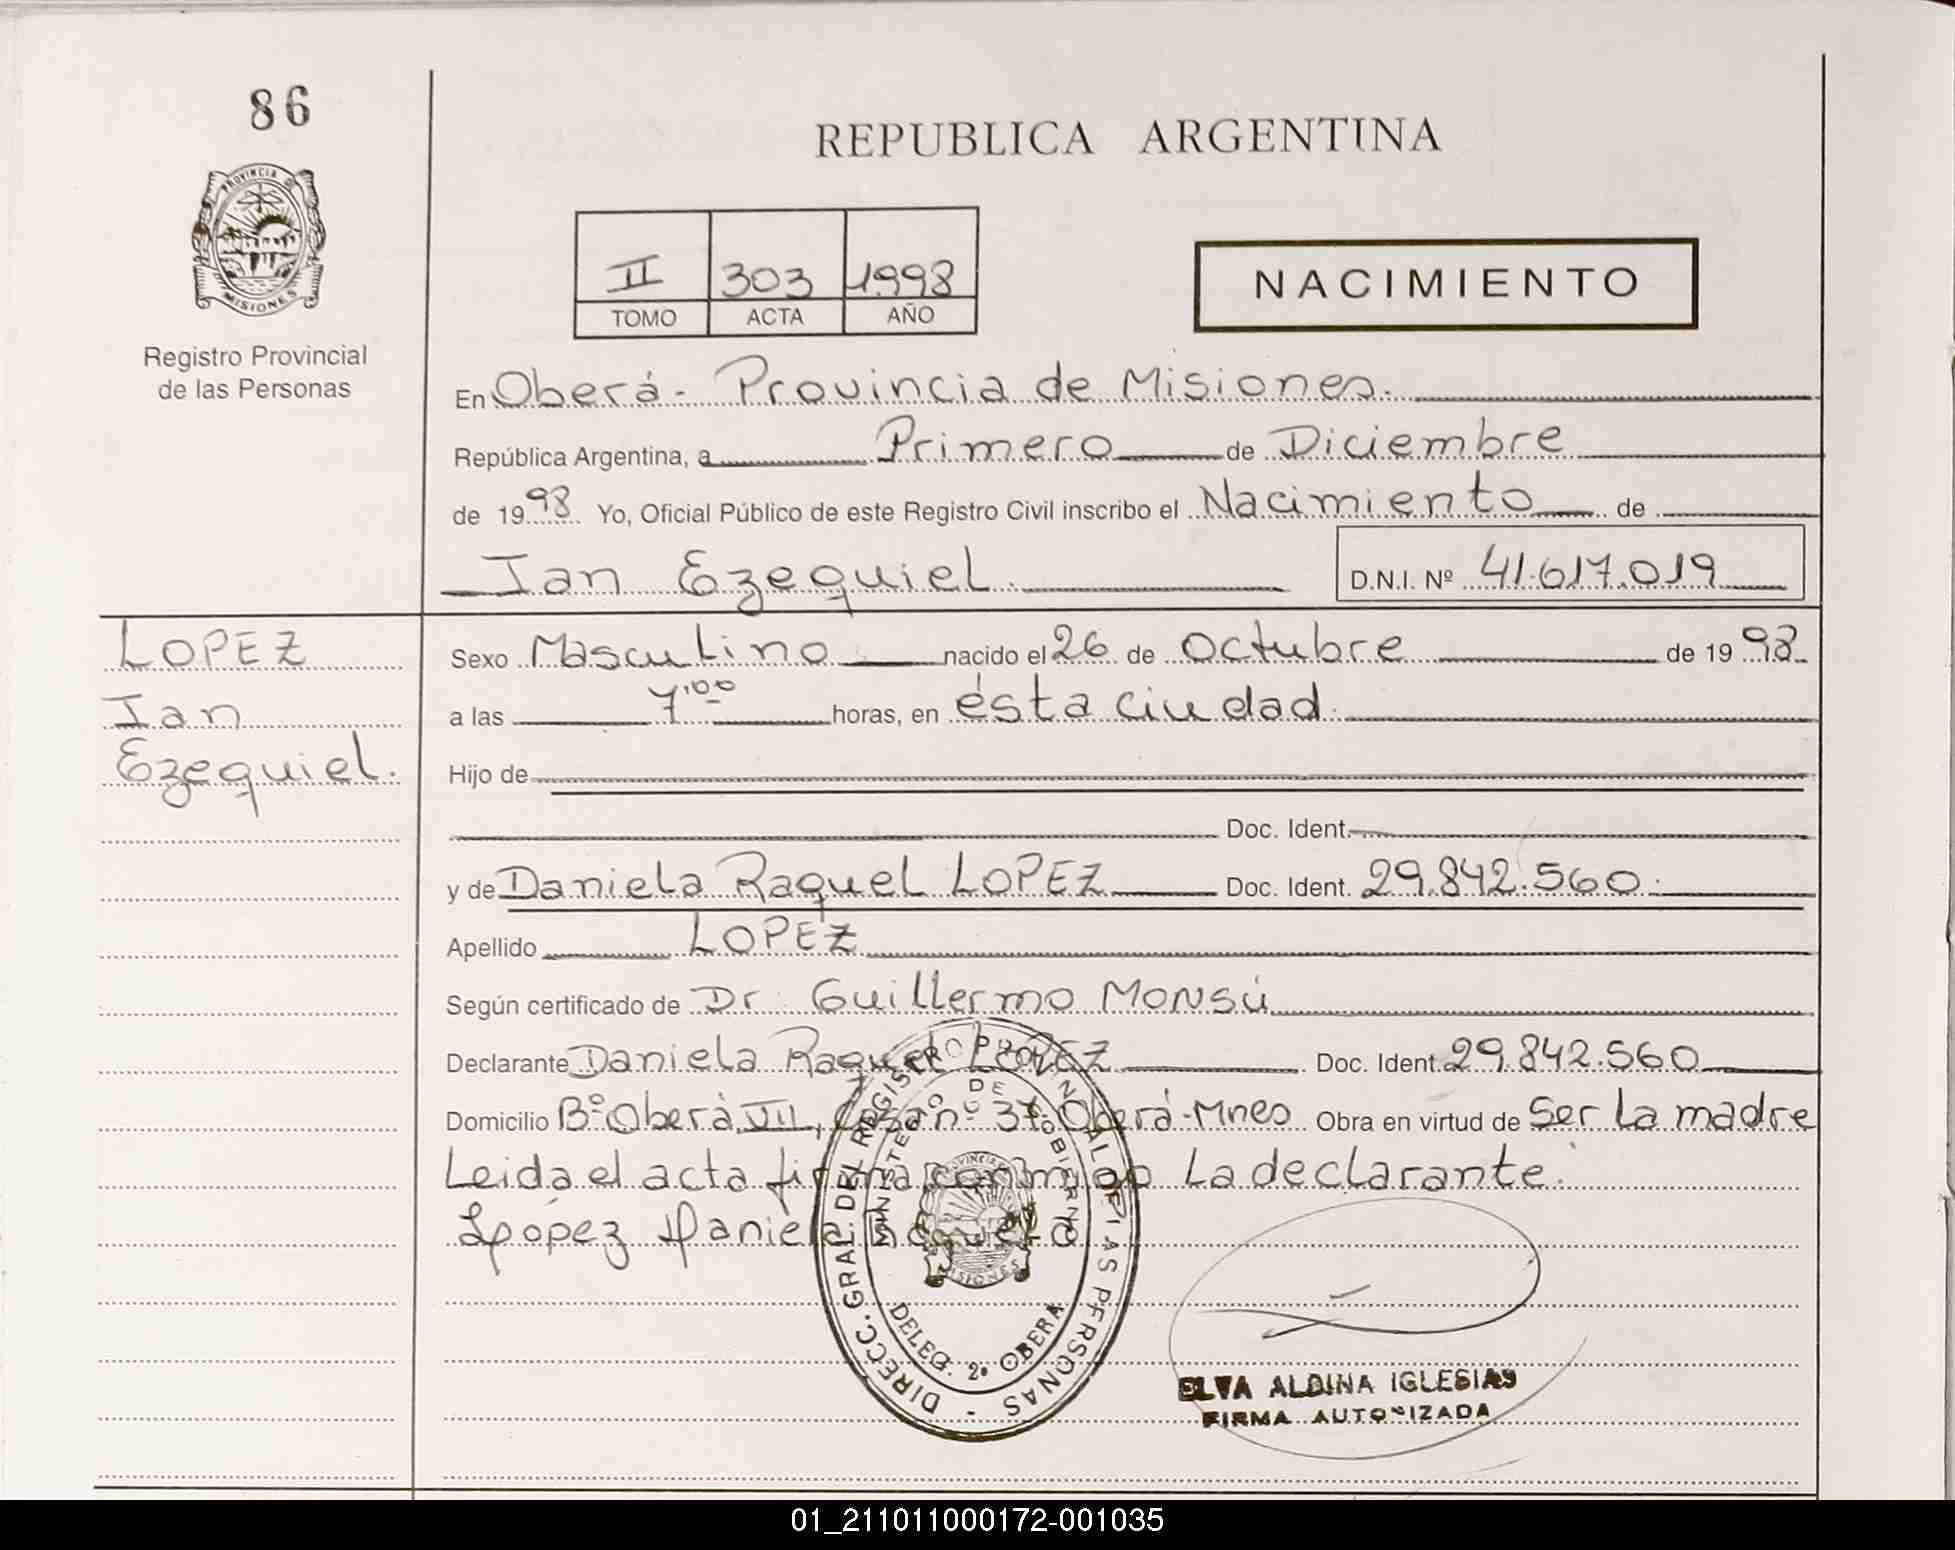 86
REPUBLICA ARGENTINA
PROVINCIA DE
MISIONES
II 303 1998
TOMO ACTA AÑO
NACIMIENTO
Registro Provincial
de las Personas
En Oberá - Provincia de Misiones.
República Argentina, a Primero de Diciembre
de 1998 Yo, Oficial Público de este Registro Civil inscribo el Nacimiento de
Ian Ezequiel. D.N.I. Nº 41.617.019
LOPEZ
Ian
Ezequiel.
Sexo Masculino nacido el 26 de Octubre de 1998
a las 7'00 horas, en ésta ciudad.
Hijo de
Doc. Ident.
y de Daniela Raquel LOPEZ Doc. Ident. 29.842.560.
Apellido LOPEZ
Según certificado de Dr. Guillermo Monsú
Declarante Daniela Raquel LOPEZ Doc. Ident. 29.842.560
Domicilio Bº Oberá VII, Casa nº 37. Oberá-Mnes Obra en virtud de Ser La madre
Leida el acta firma conmigo La declarante.
López Daniela Raquel
DIRECC. GRAL. DEL REGISTRO PROVINCIAL DE LAS PERSONAS -
MINISTERIO DE GOBIERNO
PROVINCIA
MISIONES
DELEG. 2º OBERA
ELVA ALDINA IGLESIAS
FIRMA AUTORIZADA
01_211011000172-001035